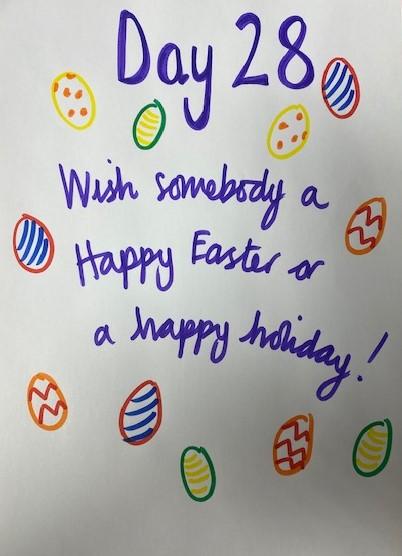 Day 28
Wish somebody a
Happy Easter or
a happy holiday!